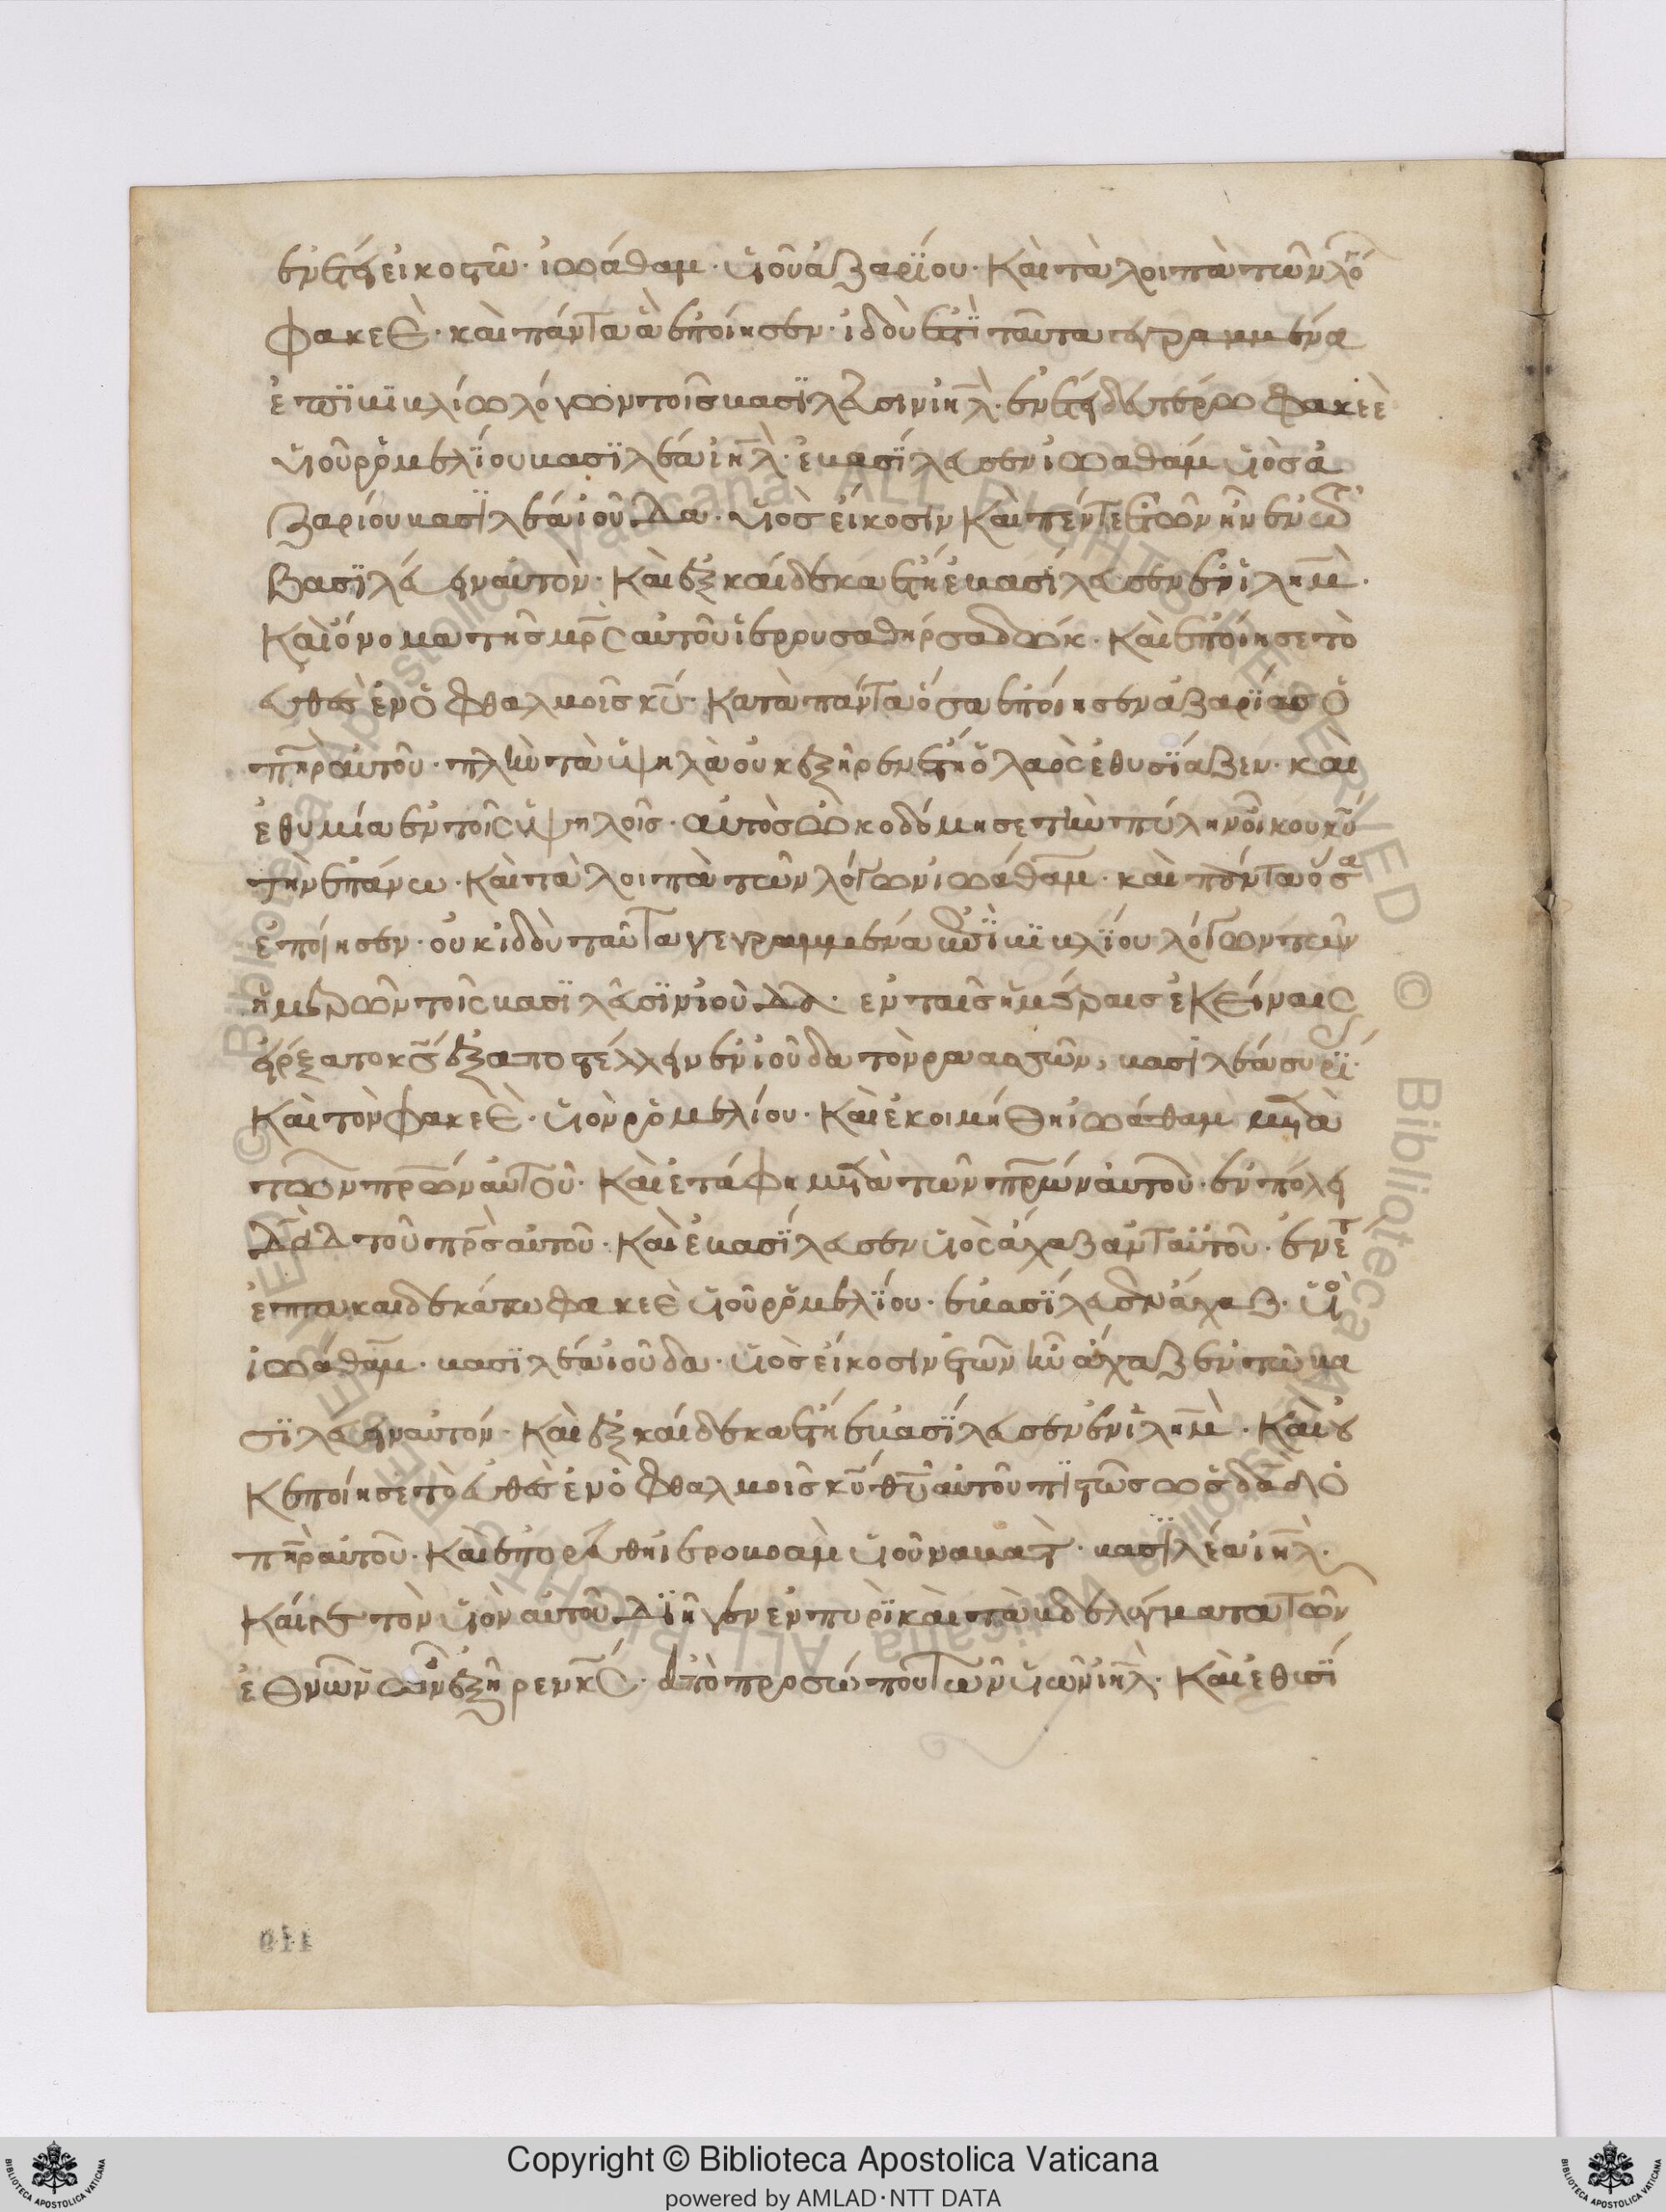 ἐν ἔτει εἰκοστῶ· ἰωάθαμ· υἱοῦ ἀζαρίου· Καὶ τὰ λοιπὰ τῶν λό
φακεὲ· καὶ πάντα ἃ ἐποίησεν· ἰδοὺ ἐστὶ ταῦτα γεγραμμένα
ἐπὶ βιβλίω λόγων τοῖς βασιλεῦσιν ιηλ· ἐν ἔτει δευτέρω φακεὲ
υἱοῦ ρομελίου βασιλέως ιηλ· ἐβασίλευσεν ἰωαθάμ υἱὸς ἀ
ζαρίου βασιλέως ἰούδα· υἱὸς εἴκοσιν Καὶ πέντε ἐτῶν ἦν ἐν τῶ
βασιλεύειν αὐτὸν· Καὶ ἑξκαίδεκα ἔτη ἐβασίλευσεν ἐν ιλημ·
Καὶ ὄνομα τῆς μρς αὐτοῦ ἱερουσα θηρ σαδωκ· Καὶ ἐποίησε τὸ
εὐθὲς ἐν ὀφθαλμοῖς κυ· Κατὰ πάντα ὅσα ἐποίησεν ἀζαρίας ὁ
πηρ αὐτοῦ· πλὴν τὰ ὑψηλὰ οὐκ ἐξῆρεν ἔτι ὁ λαὸς ἐθυσίαζεν· καὶ
ἐθυμία ἐν τοῖς ὑψηλοῖς· αὐτὸς ὠκοδόμησε τὴν πύλην οἴκου κυ
τὴν ἐπάνω· Καὶ τὰ λοιπὰ τῶν λόγων ἰωάθαμ· καὶ πάντα ὅσα
ἐποίησεν· οὐκ ἰδοὺ ταῦτα γεγραμμένα ἐπὶ βιβλίου λόγων τῶν
ἡμερῶν τοῖς βασιλεῦσιν ἰούδα· ἐν ταῖς ἡμέραις ἐκείναις
ἤρξατο κς ἐξαποστέλλειν ἐν ἰούδα τὸν ραασσὼν, βασιλέα συρί·
Καὶ τὸν φακεὲ· υἱὸν ρομελίου· Καὶ ἐκοιμήθη ἰωάθαμ μετὰ
τῶν πρων αὐτοῦ· Καὶ ἐτάφη μετὰ τῶν πρων αὐτοῦ· ἐν πόλει
δαδ τοῦ πρς αὐτοῦ· Καὶ ἐβασίλευσεν υἱὸς ἄχαζ ἀντ αὐτοῦ· ἐν ἔτ
ἑπτακαιδεκάτω φακεὲ υἱοῦ ρομελίου· ἐβασίλευσεν ἄχαζ· υἱὸ
ἰωάθαμ· βασιλέως ἰούδα· υἱὸς εἴκοσιν ἐτῶν ἦν ἄχαζ ἐν τῶ βα
σιλεύειν αὐτόν· Καὶ ἑξκαίδεκα ἔτη ἐβασίλευσεν ἐν ιλημ· Καὶ οὐ
Κ ἐποίησε τὸ εὐθὲς ἐν ὀφθαλμοῖς κυ θυ αὐτοῦ πιστῶς ὡς δαδ ὁ
πηρ αὐτοῦ· Καὶ ἐπορεύθη ἱεροβοὰμ υἱοῦ ναβὰτ· βασιλέως ιηλ·
Καί γε τὸν υἱὸν αὐτοῦ διῆγεν ἐν πυρὶ κατὰ τὰ βδελύγματα τῶν
ἐθνῶν ὧν ἐξῆρεν κς· ἀπὸ προσώπου τῶν υἱῶν ιηλ· Καὶ ἐθυσί
119
Copyright © Biblioteca Apostolica Vaticana
powered by AMLAD·NTT DATA